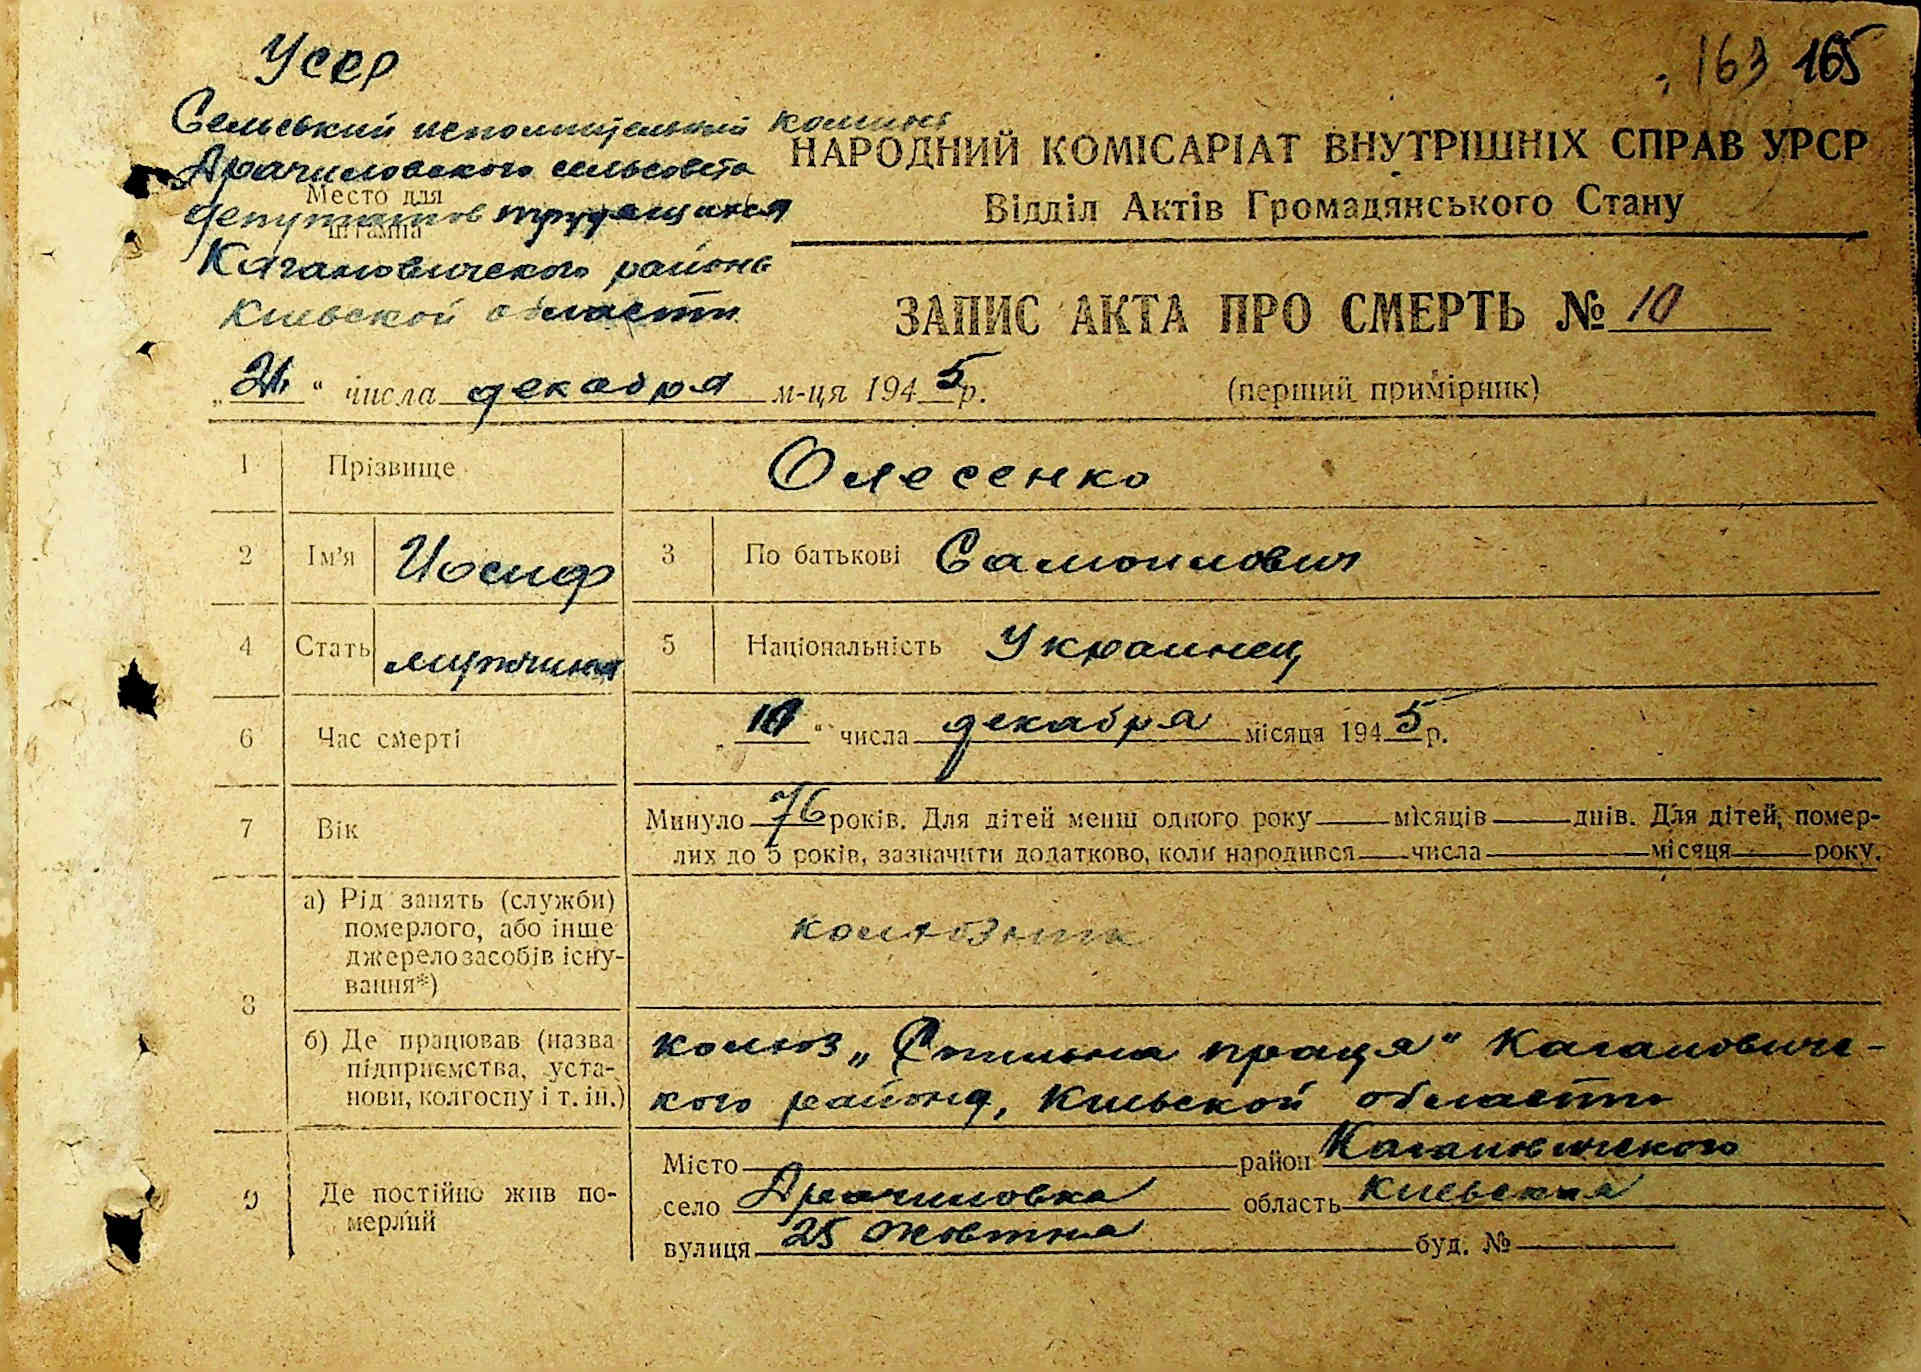 Усср
163 165
Сельський исполнительный комит
Драчиловского сельсовета
Место для
депутатов трудящихся
штампа
Кагановичского района
Киевской области
НАРОДНИЙ КОМІСАРІАТ ВНУТРІШНІХ СПРАВ УРСР
Відділ Актів Громадянського Стану
ЗАПИС АКТА ПРО СМЕРТЬ № 10
„21“ числа декабря м-ця 1945 р.
(перший примірник)
1 Прізвище Олесенко
2 Ім'я Иосиф 3 По батькові Самоилович
4 Стать мужчина 5 Національність Украинец
6 Час смерті „10“ числа декабря місяця 1945 р.
7 Вік Минуло 76 років. Для дітей менш одного року місяців днів. Для дітей, помер-
лих до 5 років, зазначити додатково, коли народився числа місяця року.
8 а) Рід занять (служби)
померлого, або інше
джерело засобів існу-
вання*)
колхозник
б) Де працював (назва
підприємства, уста-
нови, колгоспу і т. ін.)
колхоз „Спильна праця“ Кагановичс-
кого района, Киевской области
9 Де постійно жив по-
мерлий
Місто район Кагановичского
село Драчиловка область Киевская
вулиця 25 Жовтня буд. №